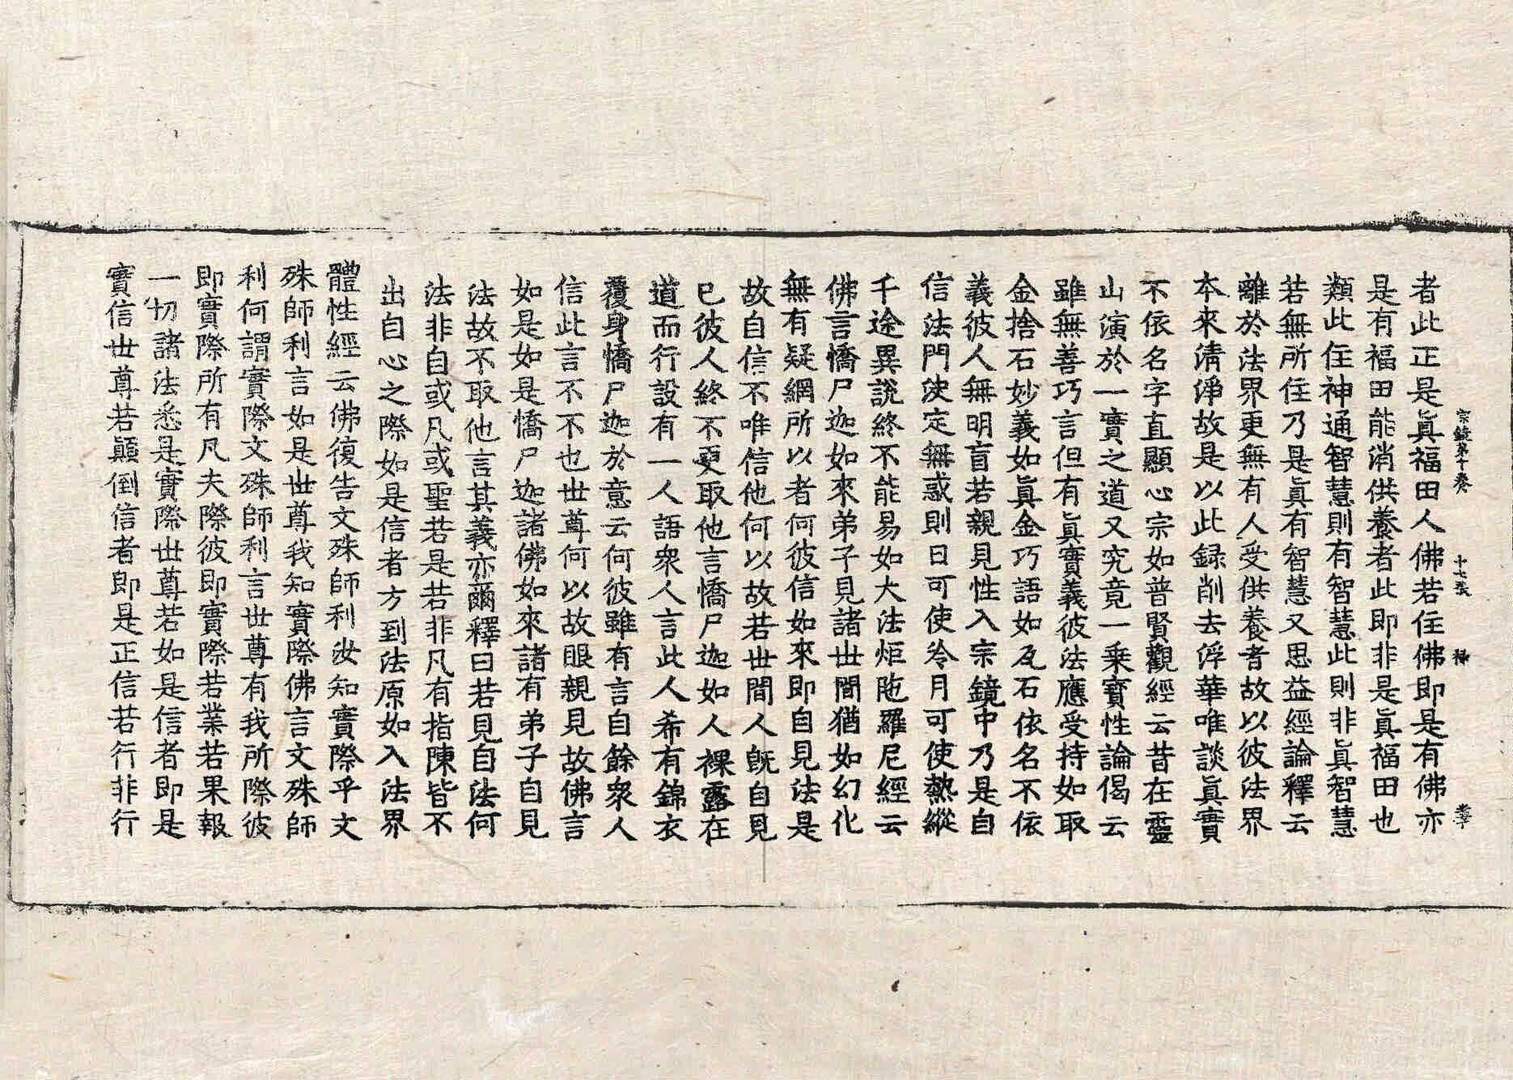 宗鏡第十卷 十七張
者此正是眞福田人佛若住佛即是有佛亦
是有福田能消供養者此即非是眞福田也
類此住神通智慧則有智慧此則非眞智慧
若無所住乃是眞有智慧又思益經論釋云
離於法界更無有人受供養者故以彼法界
本來清淨故是以此録削去浮華唯談眞實
不依名字直顯心宗如普賢觀經云昔在靈
山演於一實之道又究竟一乘寶性論偈云
雖無善巧言但有眞實義彼法應受持如取
金捨石妙義如眞金巧語如瓦石依名不依
義彼人無明盲若親見性入宗鏡中乃是自
信法門決定無惑則日可使冷月可使熱縱
千途異說終不能易如大法炬陁羅尼經云
佛言憍尸迦如來弟子見諸世間猶如幻化
無有疑網所以者何彼信如來即自見法是
故自信不唯信他何以故若世間人旣自見
已彼人終不更取他言憍尸迦如人裸露在
道而行設有一人語衆人言此人希有錦衣
覆身憍尸迦於意云何彼雖有言自餘衆人
信此言不不也世尊何以故眼親見故佛言
如是如是憍尸迦諸佛如來諸有弟子自見
法故不取他言其義亦爾釋曰若見自法何
法非自或凡或聖若是若非凡有指陳皆不
出自心之際如是信者方到法原如入法界
體性經云佛復告文殊師利汝知實際乎文
殊師利言如是世尊我知實際佛言文殊師
利何謂實際文殊師利言世尊有我所際彼
即實際所有凡夫際彼即實際若業若果報
一切諸法悉是實際世尊若如是信者即是
實信世尊若顚倒信者即是正信若行非行